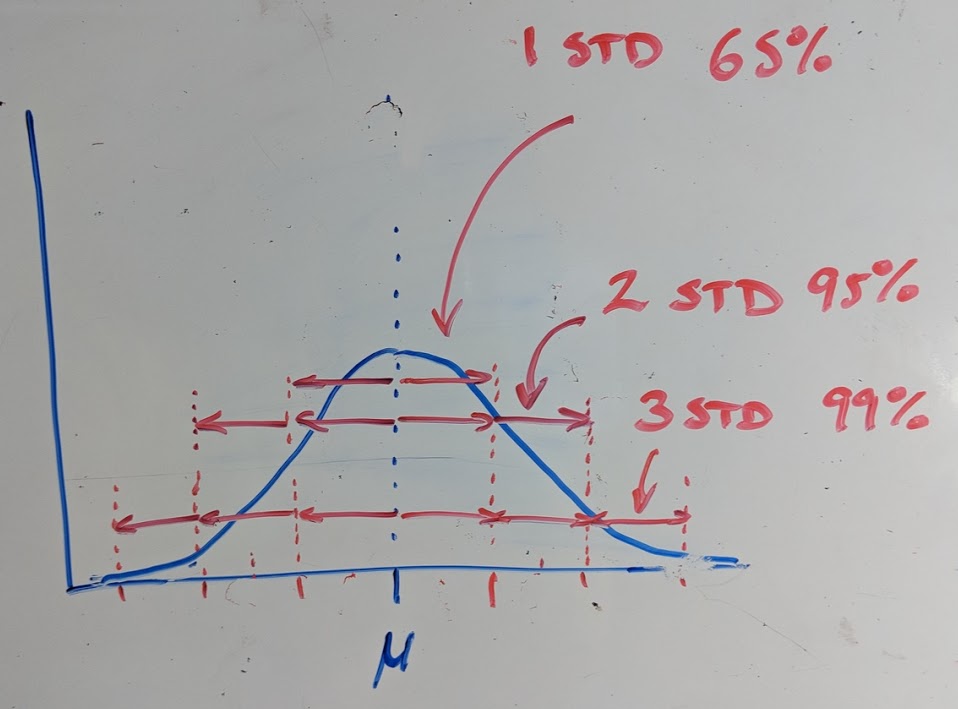 1 STD 65%
2 STD 95%
3 STD 99%
μ